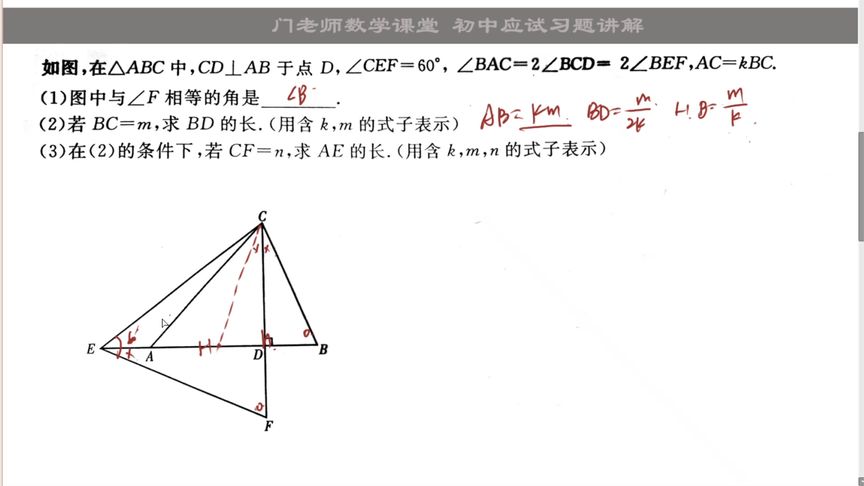 门老师数学课堂 初中应试习题讲解
如图,在△ABC 中,CD⊥AB 于点 D,∠CEF=60°,∠BAC=2∠BCD=2∠BEF,AC=kBC.
(1)图中与∠F 相等的角是 ∠B .
(2)若 BC=m,求 BD 的长.(用含 k,m 的式子表示) AB=km. BD=m/2k H.B=m/k.
(3)在(2)的条件下,若 CF=n,求 AE 的长.(用含 k,m,n 的式子表示)
C
E A H D B
F